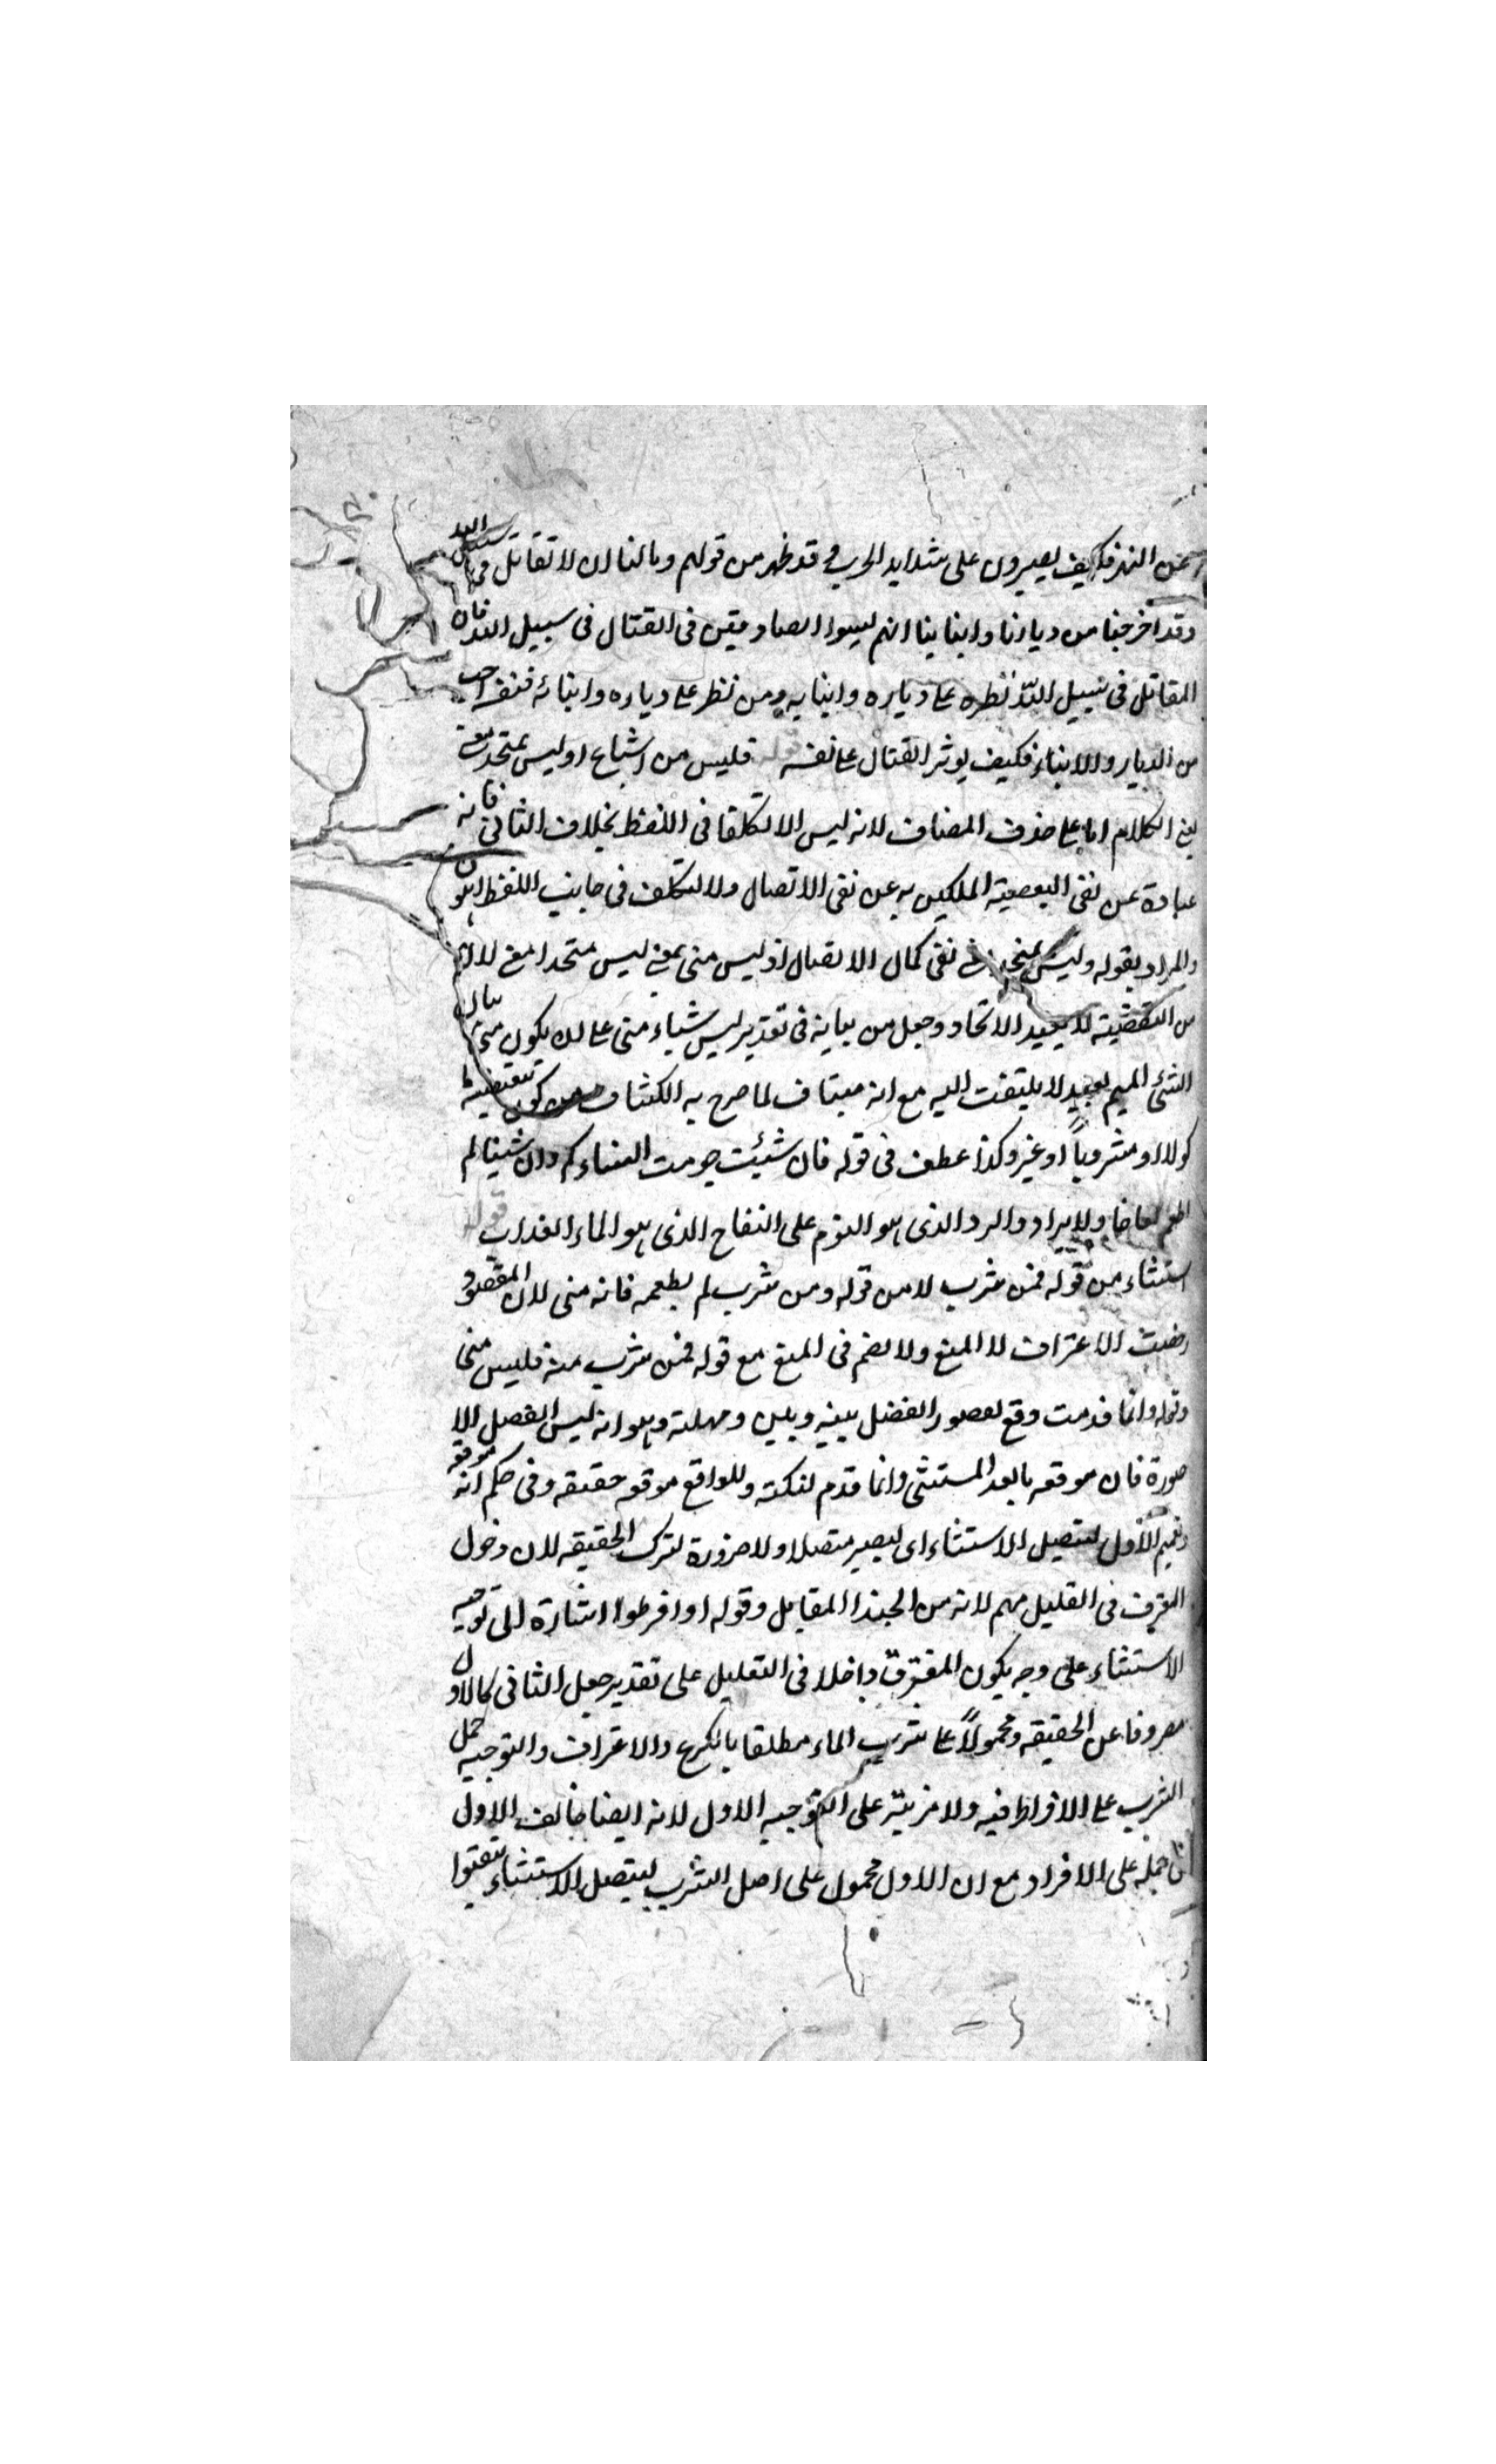 عن النهر فكيف يصبرون على شدايد الحرب قد ظهر من قولهم ومالنا ان لا نقاتل فى سبيل الله
وقد اخرجنا من ديارنا وابناينا انهم ليسوا الصادقين فى القتال فى سبيل الله فان
المقاتل فى سبيل الله نظره على دياره وابنايه ومن نظر على دياره وابنائه فنفسه احب
من الديار والابناء فكيف يوثر القتال على نفسه قوله فليس من اشياع او ليس بمتحد
الكلام اما على حذف المضاف لانه ليس الا تكلفا فى اللفظ بخلاف الثانى فانه
عبارة عن نفى البعضية عن نفى الاتصال ولا تكلف فى جانب اللفظ
والمراد بقوله وليس بمتحد نفى كمال الاتصال اذ ليس منى بمعنى ليس متحدا معى لان
من التبعضية لا يفيد الاتحاد وجعل من بيانية فى تقدير ليس شياء منى على ان يكون بيان
الشئ المبهم بعيد لا يلتفت اليه مع انه مناف لما صرح به الكشاف من كون تبعضية
كولا او مشروبا او غيره وكذا عطف فى قوله فان شيئت حرمت النساءكم وان شينا لم
اطعم نقاخا ولا برادا والبرد الذى هو النوم على النقاخ الذى هو الماء العذب قوله
استثناء من قوله فمن شرب لا من قوله ومن شرب لم يطعمه فانه منى لان المقصود
رخصت الاغتراف لا المنع ولا نضم فى المنع مع قوله فمن شرب منه فليس منى
وقوله وانما قدمت وقع الفصل بينه وبين وجملة وهو انه ليس الفصل الا
صورة فان موقعه ما بعد المستثنى وانما قدم لنكتة وللواقع موقعه حقيقه وفى حكم انه موقعه
وتعميم الاول ليتصل الاستثناء اى ليصير متصلا ولا ضرورة لترك الحقيقه لان دخول
المغترف فى القليل مبهم لانه من الجند المقابل وقوله او افرطوا اشارة الى توجيه
الاستثناء على وجه يكون المغترف داخلا فى القليل على تقدير جعل الثانى كالاول
مصروفا عن الحقيقه ومحمولا على شرب الماء مطلقا بالكرع والاغتراف والتوجيه حمل
الشرب على الافراط فيه ولا مزية على التوجيه الاول لانه ايضا خالف الاول
حمله على الافراد مع ان الاول محمول على اصل الشرب ليتصل الاستثناء